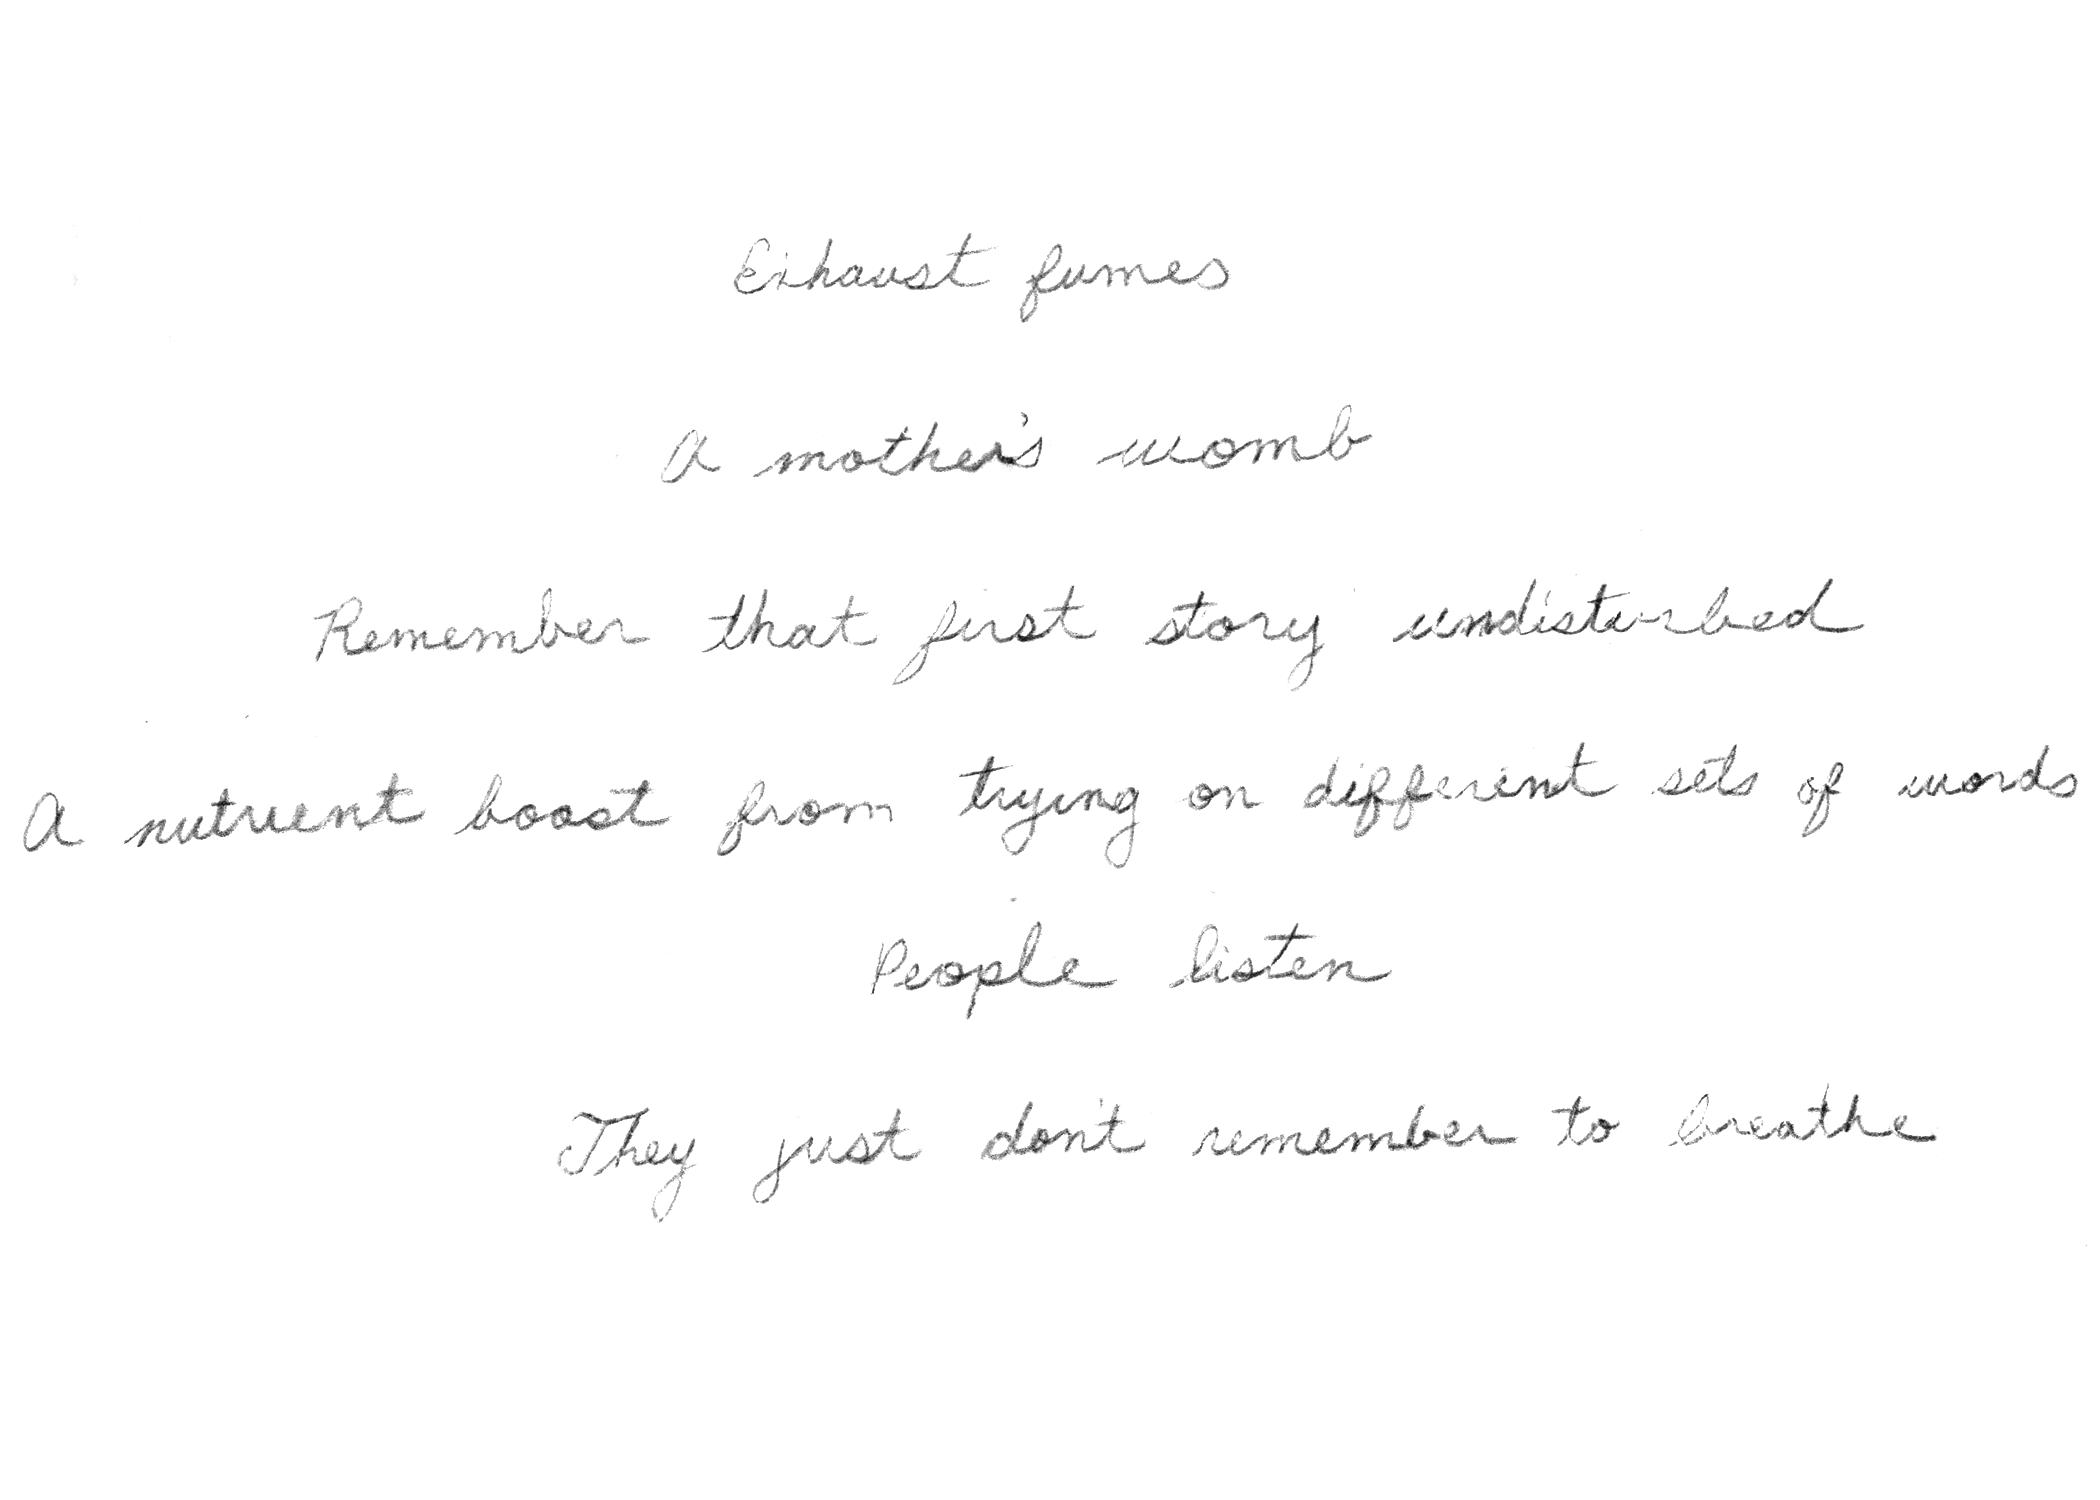 Exhaust fumes
A mother's womb
Remember that first story undisturbed
A nutrient boost from trying on different sets of words
People listen
They just don't remember to breathe